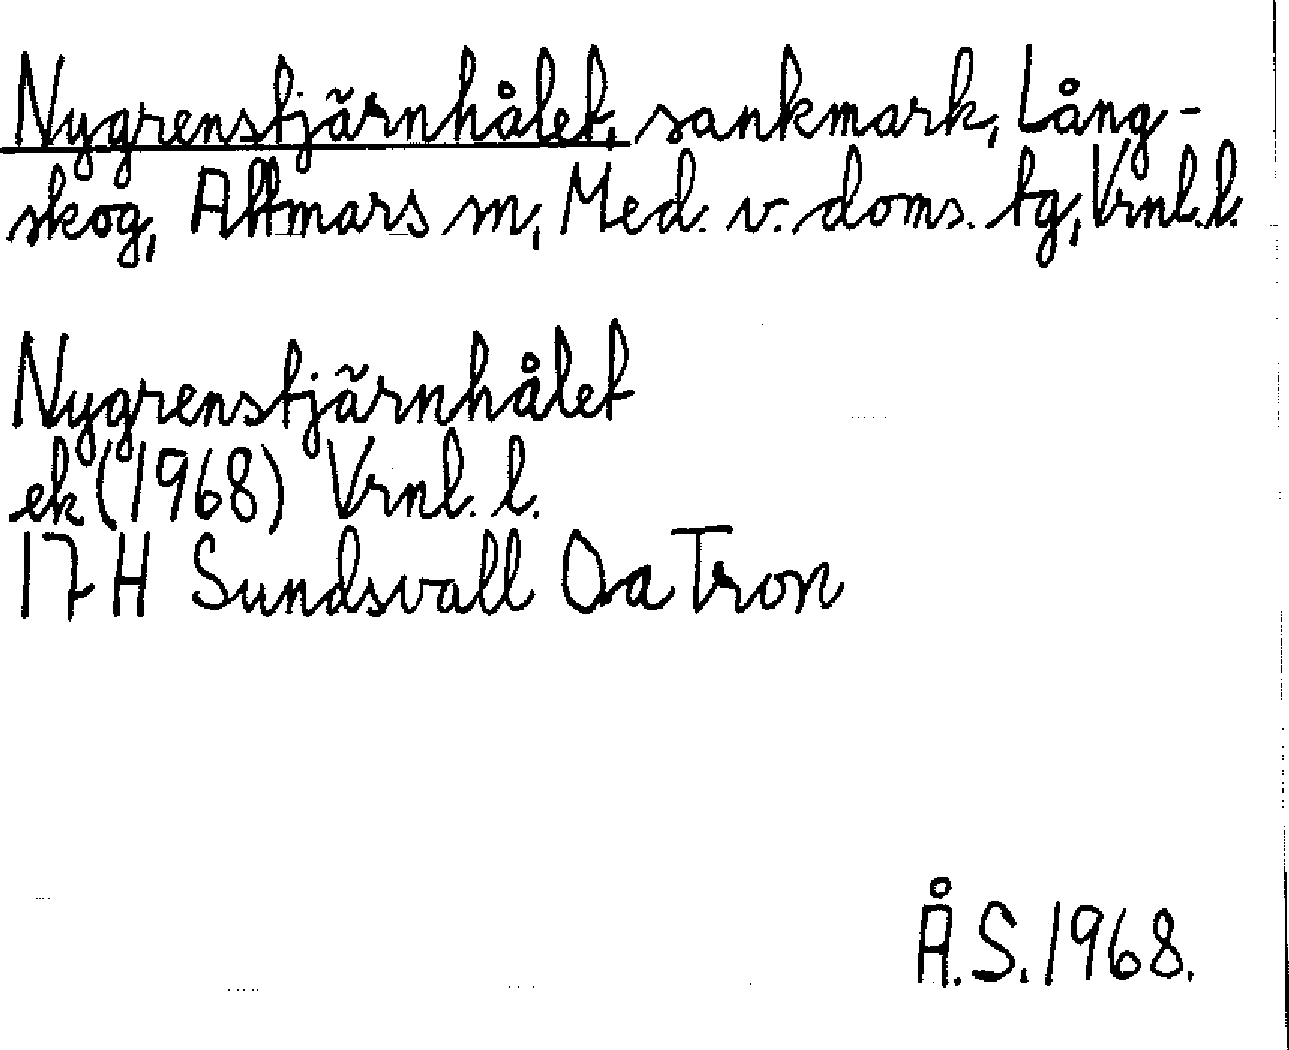 Nygrenstjärnhålet, sankmark, Lång-
skog, Attmars sn, Med. v. doms. tg, Vrnl. l.
Nygrenstjärnhålet
ek (1968) Vrnl. l.
17 H Sundsvall Oa Tron
Å.S. 1968.